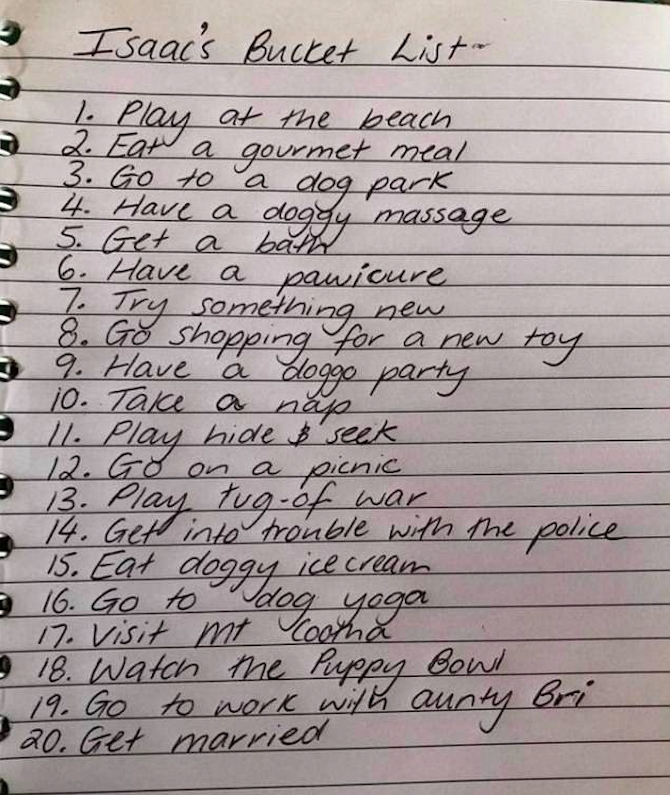 Isaac's Bucket List~
1. Play at the beach
2. Eat a gourmet meal
3. Go to a dog park
4. Have a doggy massage
5. Get a bath
6. Have a pawicure
7. Try something new
8. Go shopping for a new toy
9. Have a doggo party
10. Take a nap
11. Play hide & seek
12. Go on a picnic
13. Play tug-of war
14. Get into trouble with the police
15. Eat doggy ice cream
16. Go to dog yoga
17. Visit Mt Cootha
18. Watch the Puppy Bowl
19. Go to work with aunty Bri
20. Get married